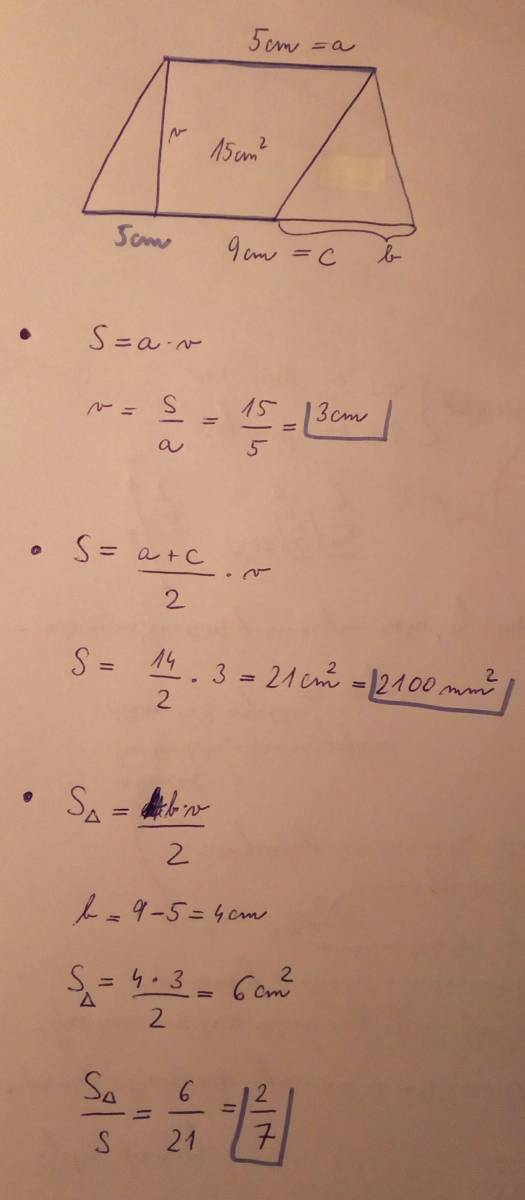 5cm = a
v
15cm²
5cm
9cm = c
b
• S = a · v
v = S/a = 15/5 = 3cm
• S = (a + c)/2 · v
S = 14/2 · 3 = 21cm² = 2100 mm²
• S△ = b·v/2
b = 9 - 5 = 4cm
S△ = 4 · 3/2 = 6cm²
S△/S = 6/21 = 2/7